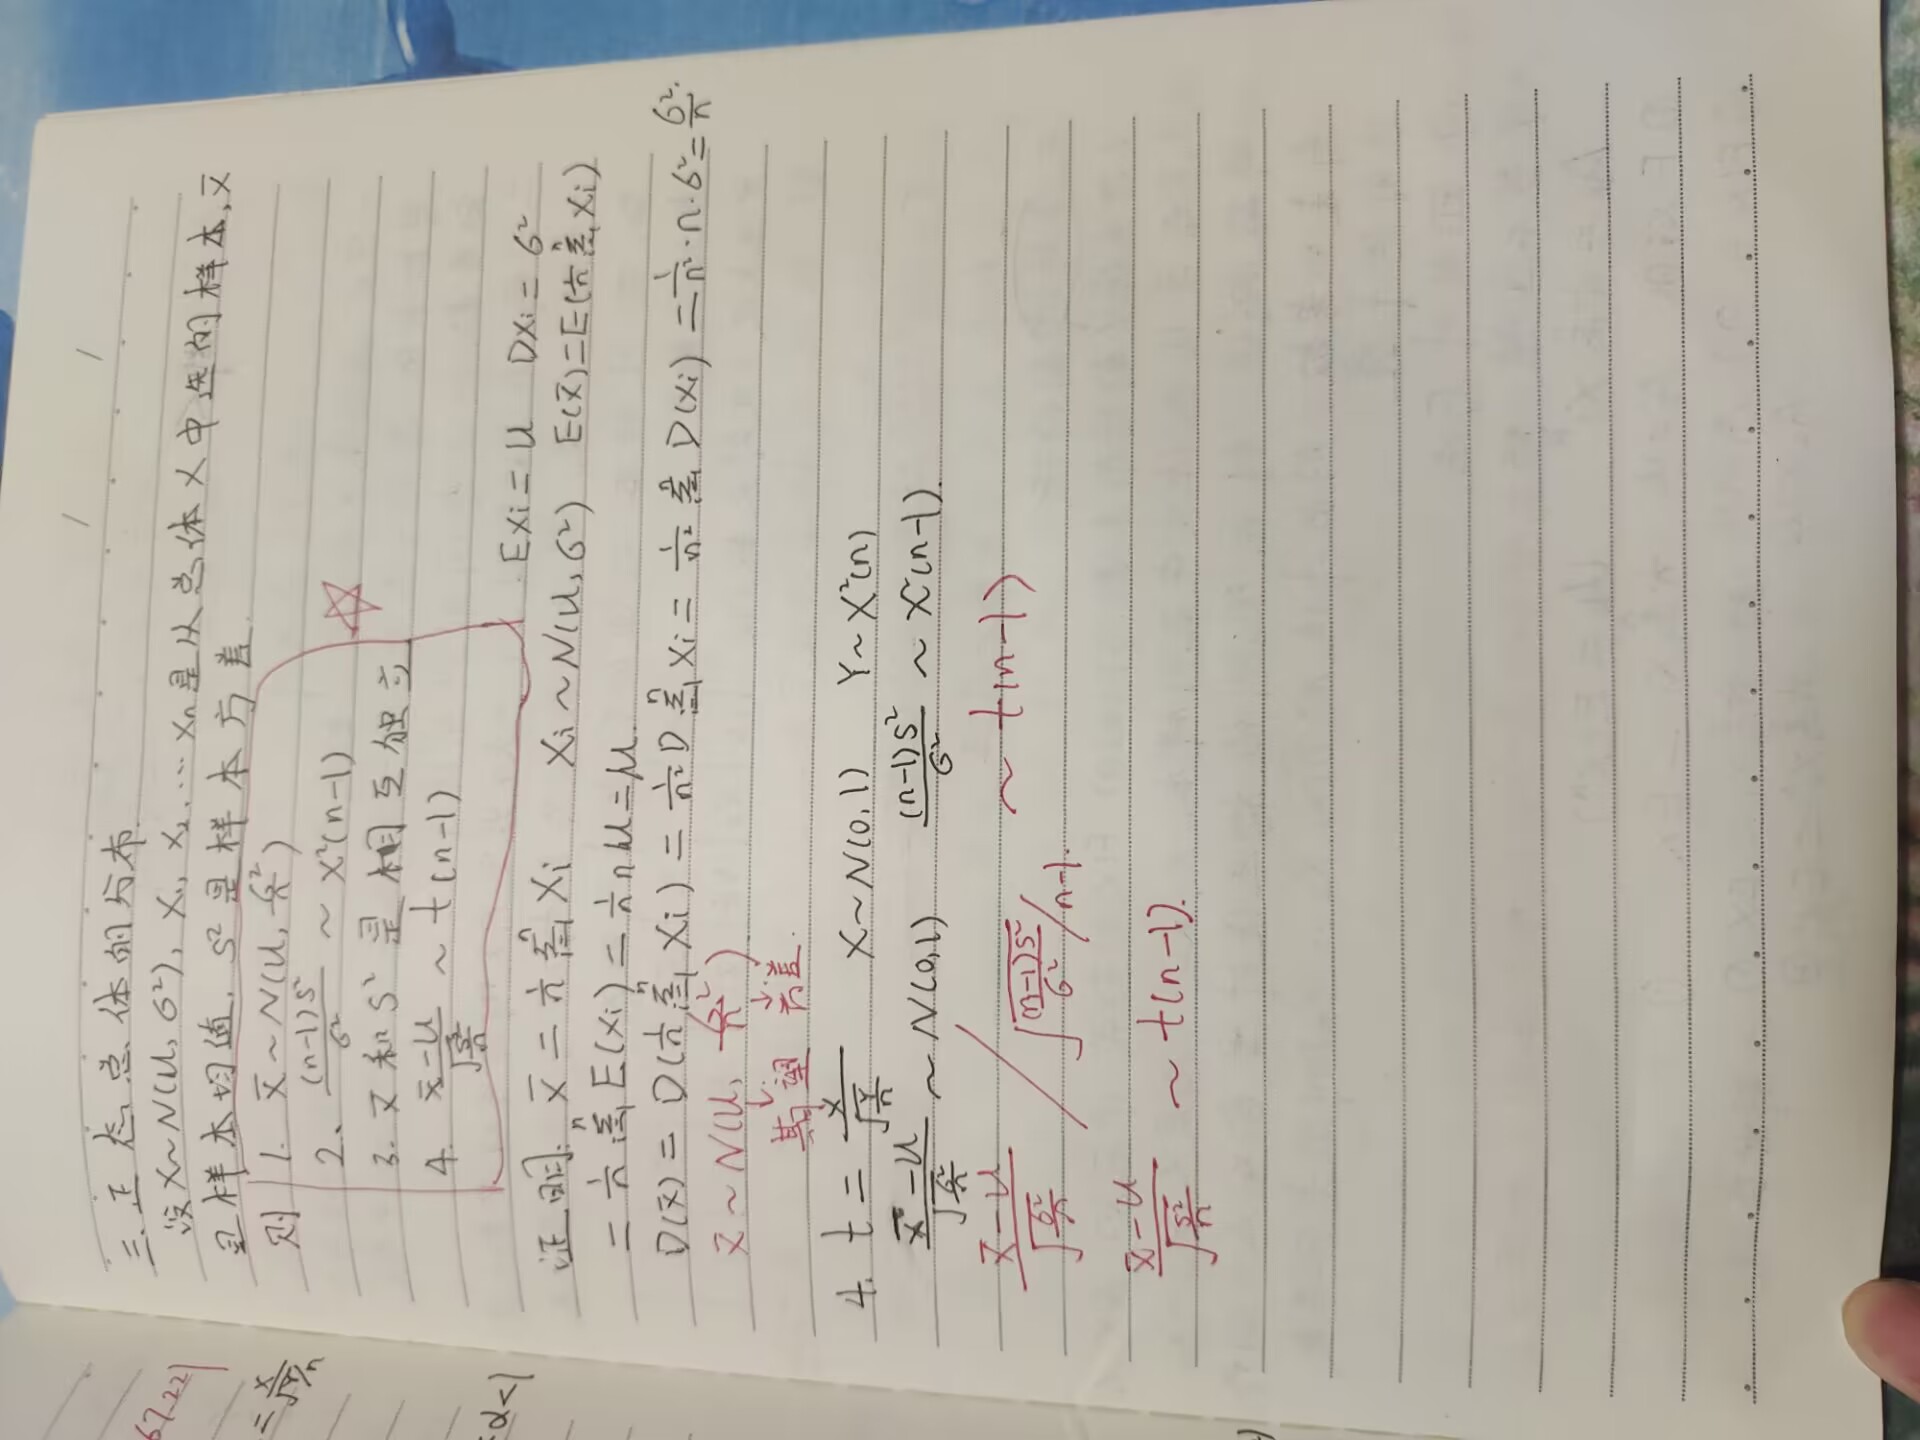 三、正态总体的分布
设X~N(μ,σ²), X₁, X₂,…Xn是从总体X中选的样本, x̄
是样本均值, S²是样本方差.
则 1. x̄~N(μ, σ²/n)
2、 (n-1)S²/σ² ~ χ²(n-1)
3. x̄和S²是相互独立
4. (x̄-μ)/√(S²/n) ~ t(n-1)
EXi=μ DXi=σ²
证明: x̄ = 1/n Σ(i=1→n) Xi Xi~N(μ,σ²) E(x̄)=E(1/n Σ(i=1→n) Xi)
= 1/n Σ(i=1→n) E(Xi) = 1/n nμ=μ.
D(x̄) = D(1/n Σ(i=1→n) Xi) = 1/n² D Σ(i=1→n) Xi = 1/n² Σ(i=1→n) D(Xi) = 1/n²·n·σ² = σ²/n.
x̄ ~ N(μ, σ²/n)
↓ ↓
期望 方差.
4. t = X/√(Y/n) X~N(0,1) Y~χ²(n)
(x̄-μ)/√(σ²/n) ~ N(0,1) (n-1)S²/σ² ~ χ²(n-1).
(x̄-μ)/√(σ²/n) / √((n-1)S²/σ² / n-1) ~ t(n-1)
(x̄-μ)/√(S²/n) ~ t(n-1).
=X/√(Y/n)